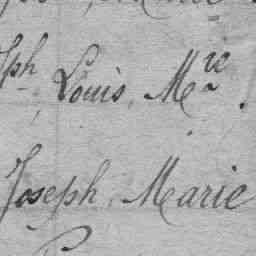 ph Louis, Mrie
Joseph, Marie